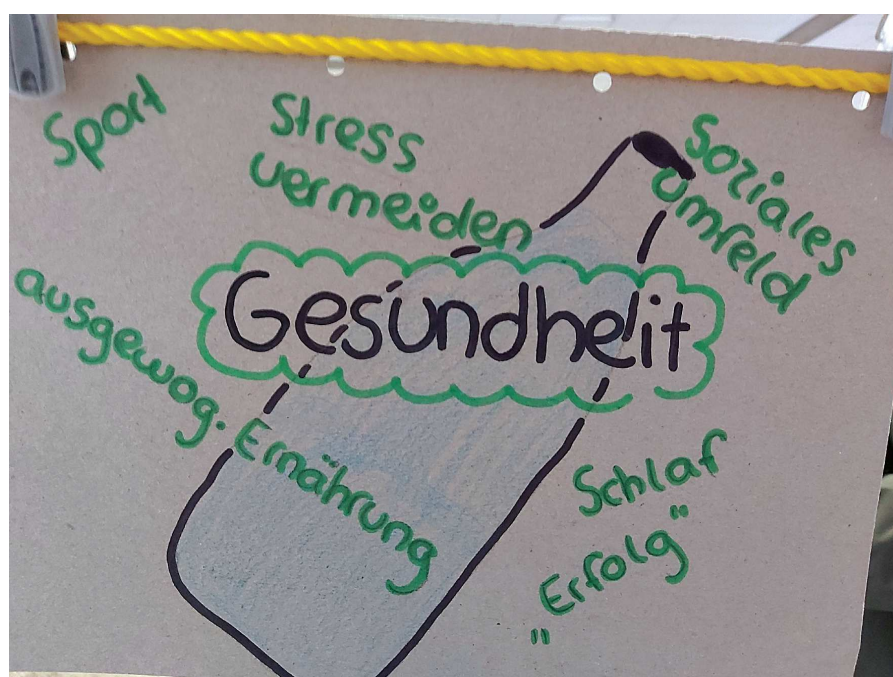 Sport
Stress
vermeiden
Soziales
Umfeld
Gesundheit
ausgewog. Ernährung
Schlaf
"Erfolg"